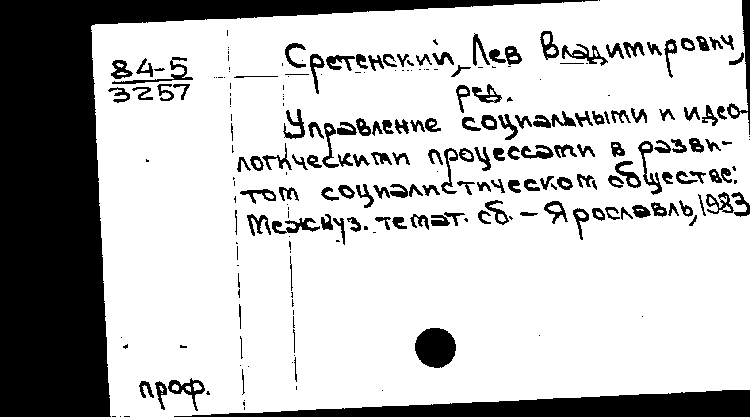 84-5
3257
Сретенский, Лев Владимирович,
ред.
Управление социальными и идео-
логическими процессами в разви-
том социалистическом обществе:
Межвуз. темат. сб. – Ярославль, 1983
проф.